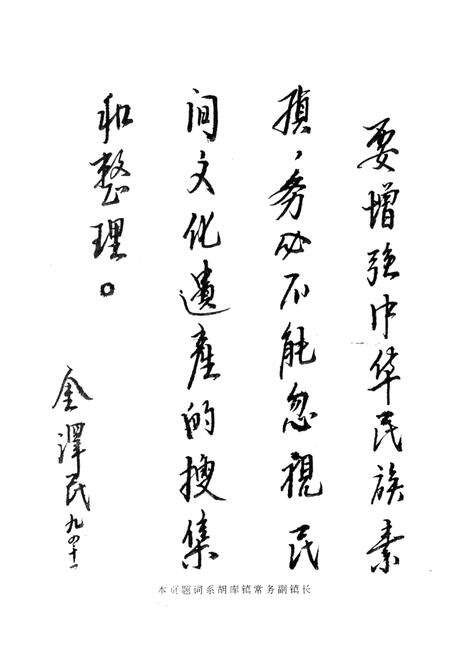 要增强中华民族素
質，务必不能忽視民
间文化遺產的搜集
和整理。
金澤民 九四十一
本页题词系胡库镇常务副镇长